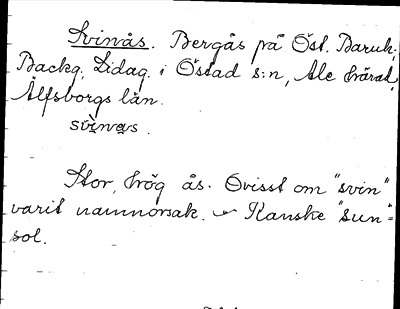 Svinås. Bergås på Öst. Baruk,
Backg, Lidag. i Östad s:n, Ale härad,
Älfsborgs län.
svinås.
Stor, hög ås. Ovisst om "svin"
varit namnorsak. Kanske "sun"=
sol.